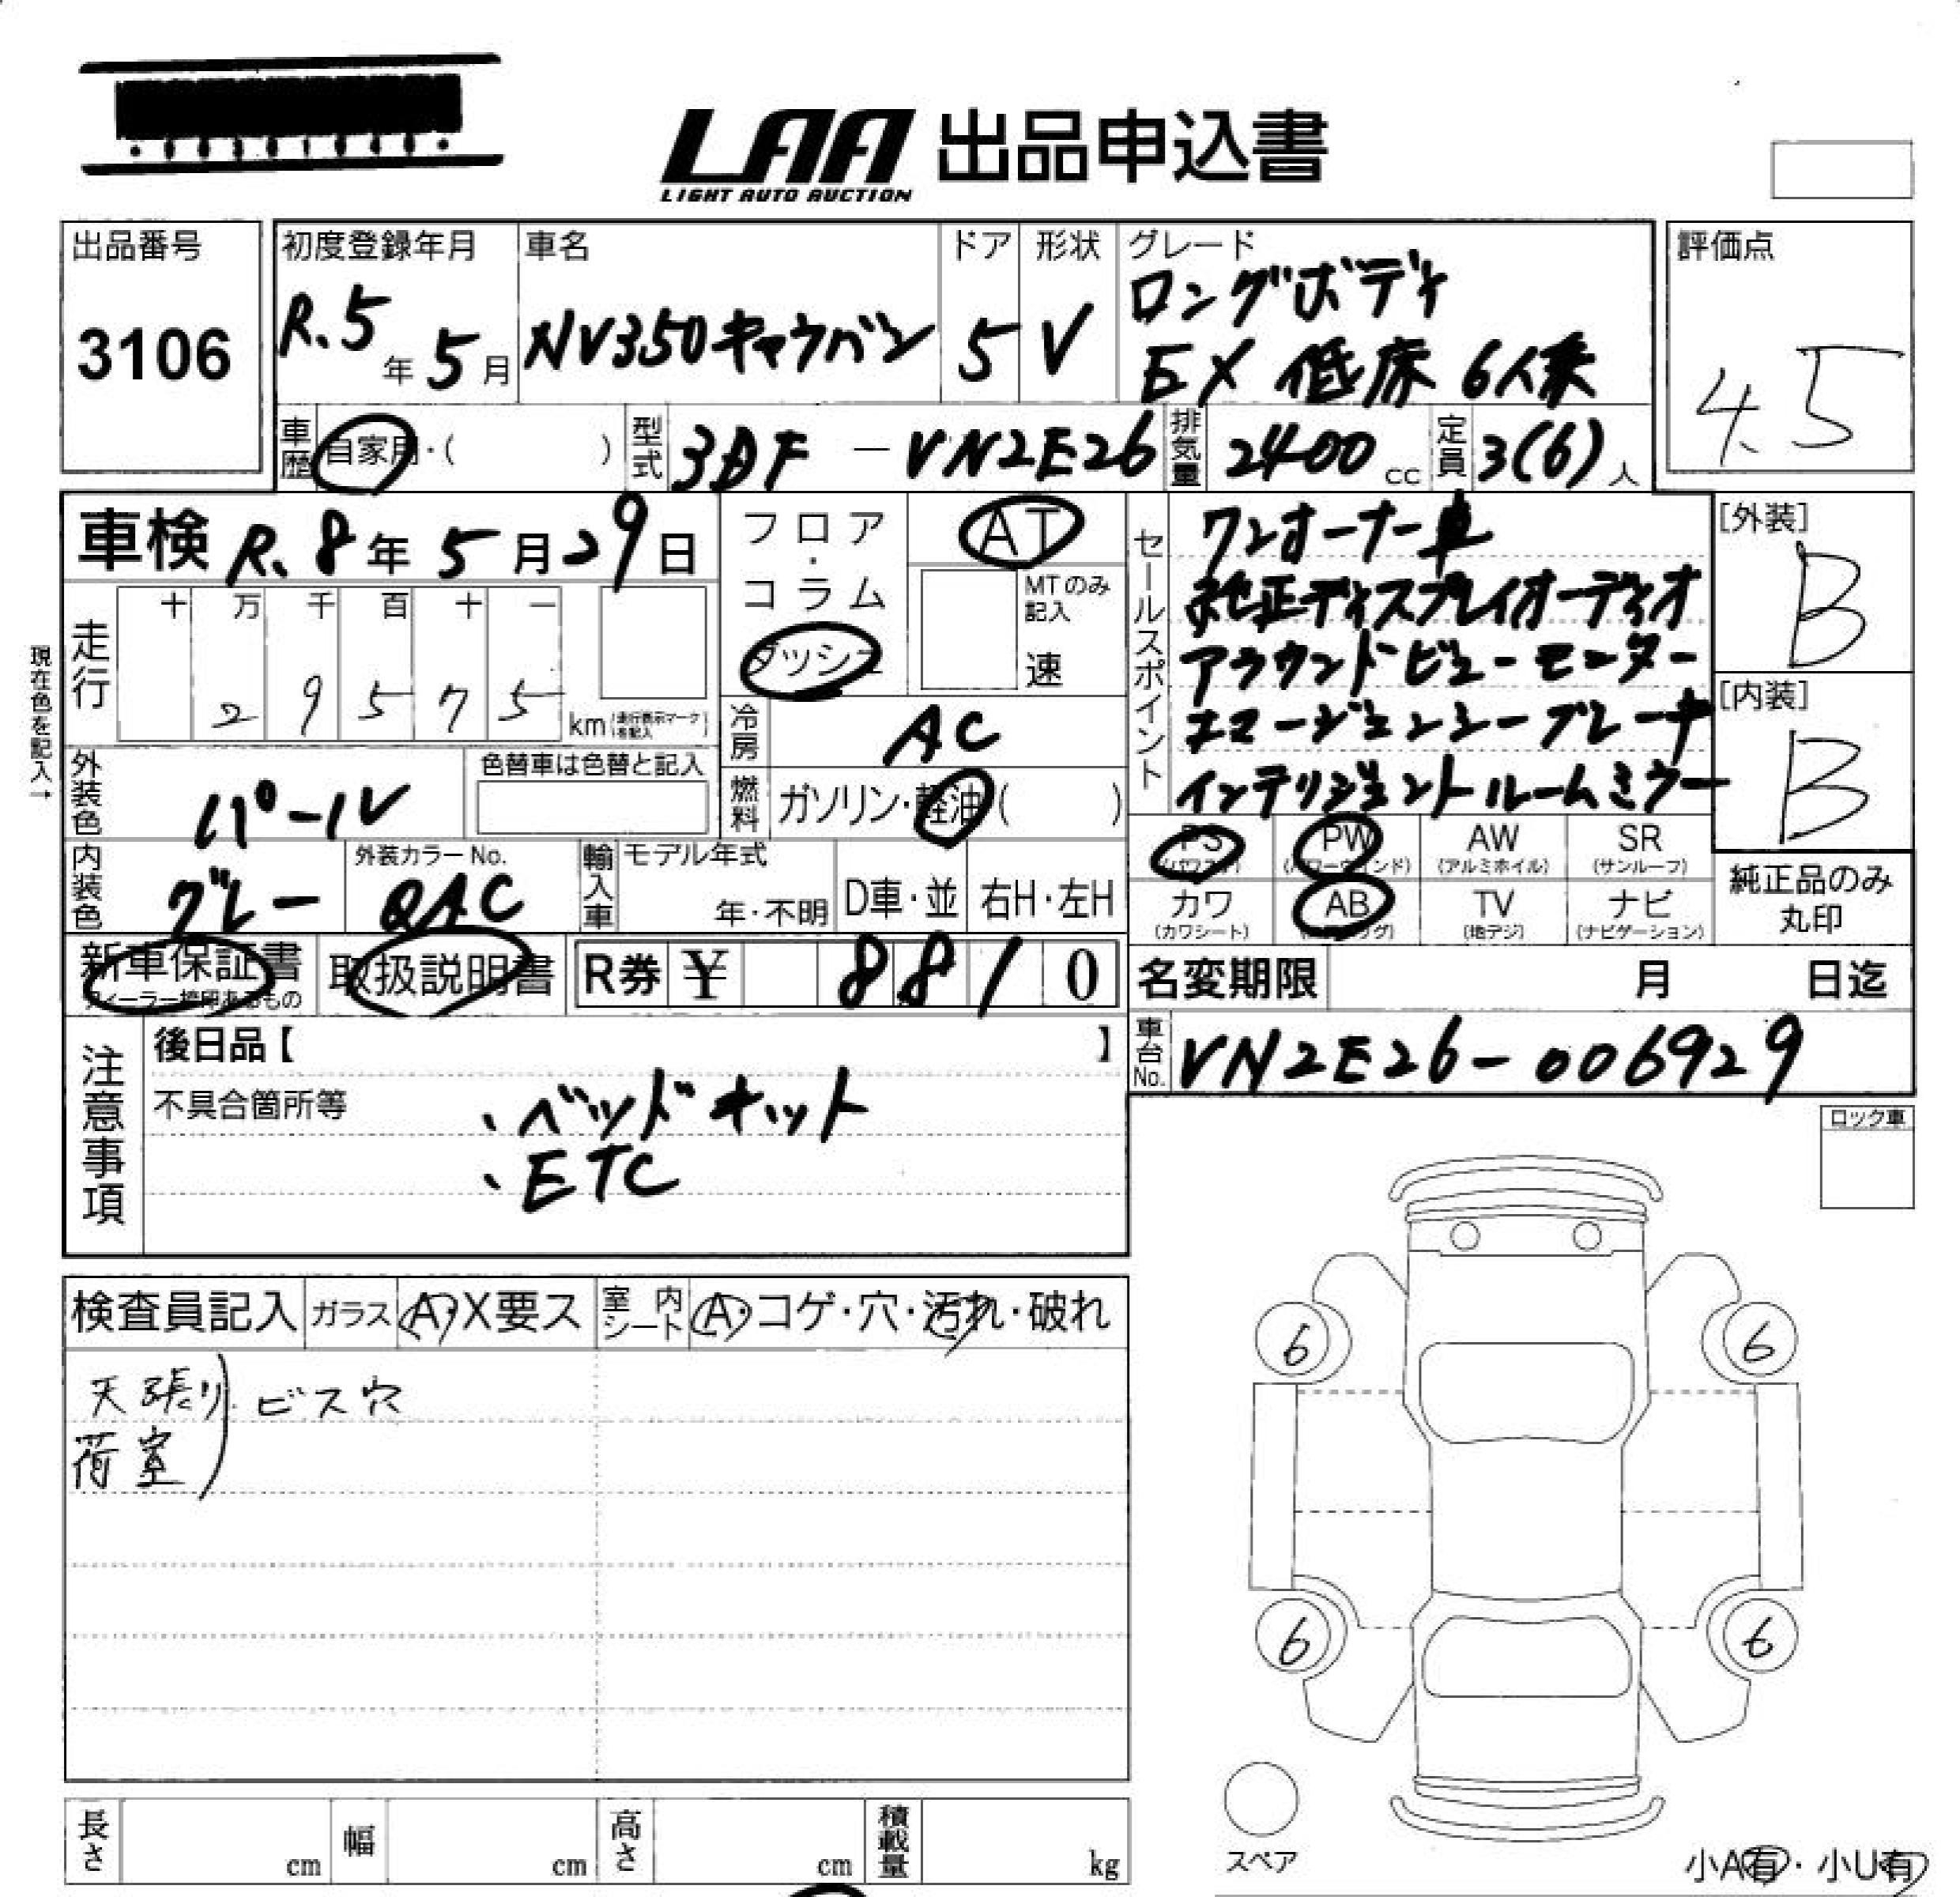 LAA 出品申込書
LIGHT AUTO AUCTION
出品番号
3106
初度登録年月
R.5年5月
車名
NV350キャラバン
ドア
5
形状
V
グレード
ロングボディ
EX 低床 6人乗
評価点
4.5
車歴 自家用・( )
型式 3DF-VN2E26
排気量 2400cc
定員 3(6)人
車検 R.8年5月29日
フロア・コラム
ダッシュ
AT
MTのみ記入
速
セールスポイント
ワンオーナー車
純正ディスプレイオーディオ
アラウンドビューモニター
エマージェンシーブレーキ
インテリジェントルームミラー
[外装]
B
[内装]
B
現在色を記入→
走行
十 万 千 百 十 一
2 9 5 7 5 km (走行表示マークを記入)
冷房 AC
外装色 パール
色替車は色替と記入
燃料 ガソリン・軽油( )
内装色 グレー
外装カラーNo.
QAC
輸入車 モデル年式
年・不明
D車・並
右H・左H
PS (パワステ)
PW (パワーウィンド)
AW (アルミホイル)
SR (サンルーフ)
カワ (カワシート)
AB (エアバッグ)
TV (地デジ)
ナビ (ナビゲーション)
純正品のみ
丸印
新車保証書
ディーラー捺印あるもの
取扱説明書
R券 ¥ 8810
名変期限 月 日迄
車台No. VN2E26-006929
注意事項
後日品【 】
不具合箇所等
・ベッドキット
・ETC
ロック車
検査員記入 ガラス A・X要ス 室内シート A・コゲ・穴・汚れ・破れ
天張り
荷室) ビス穴
6 6
6 6
スペア
長さ cm 幅 cm 高さ cm 積載量 kg
小A有・小U有